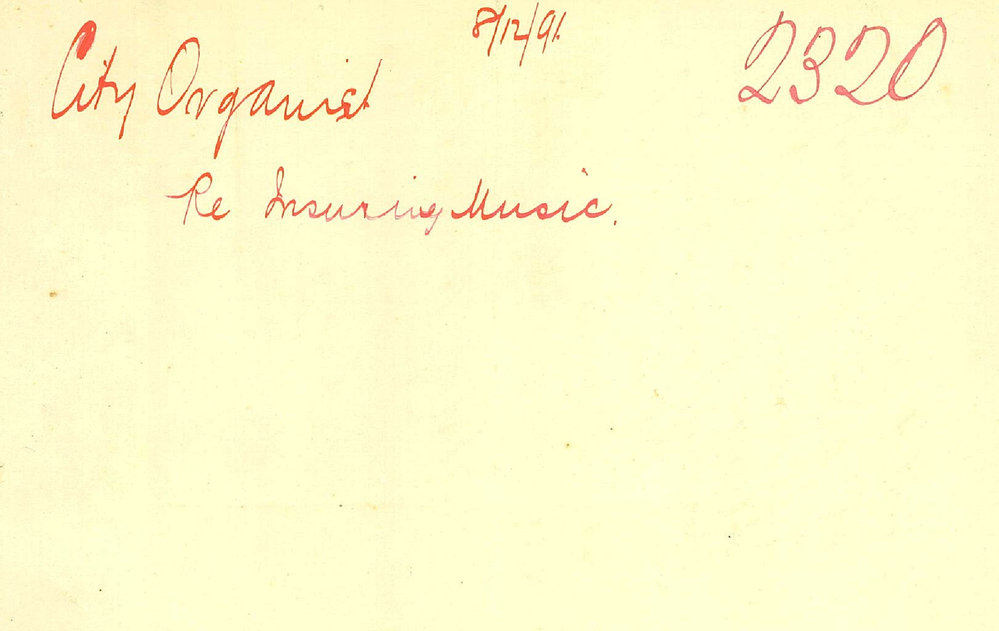 8/12/91.
2320
City Organist
Re Insuring Music.